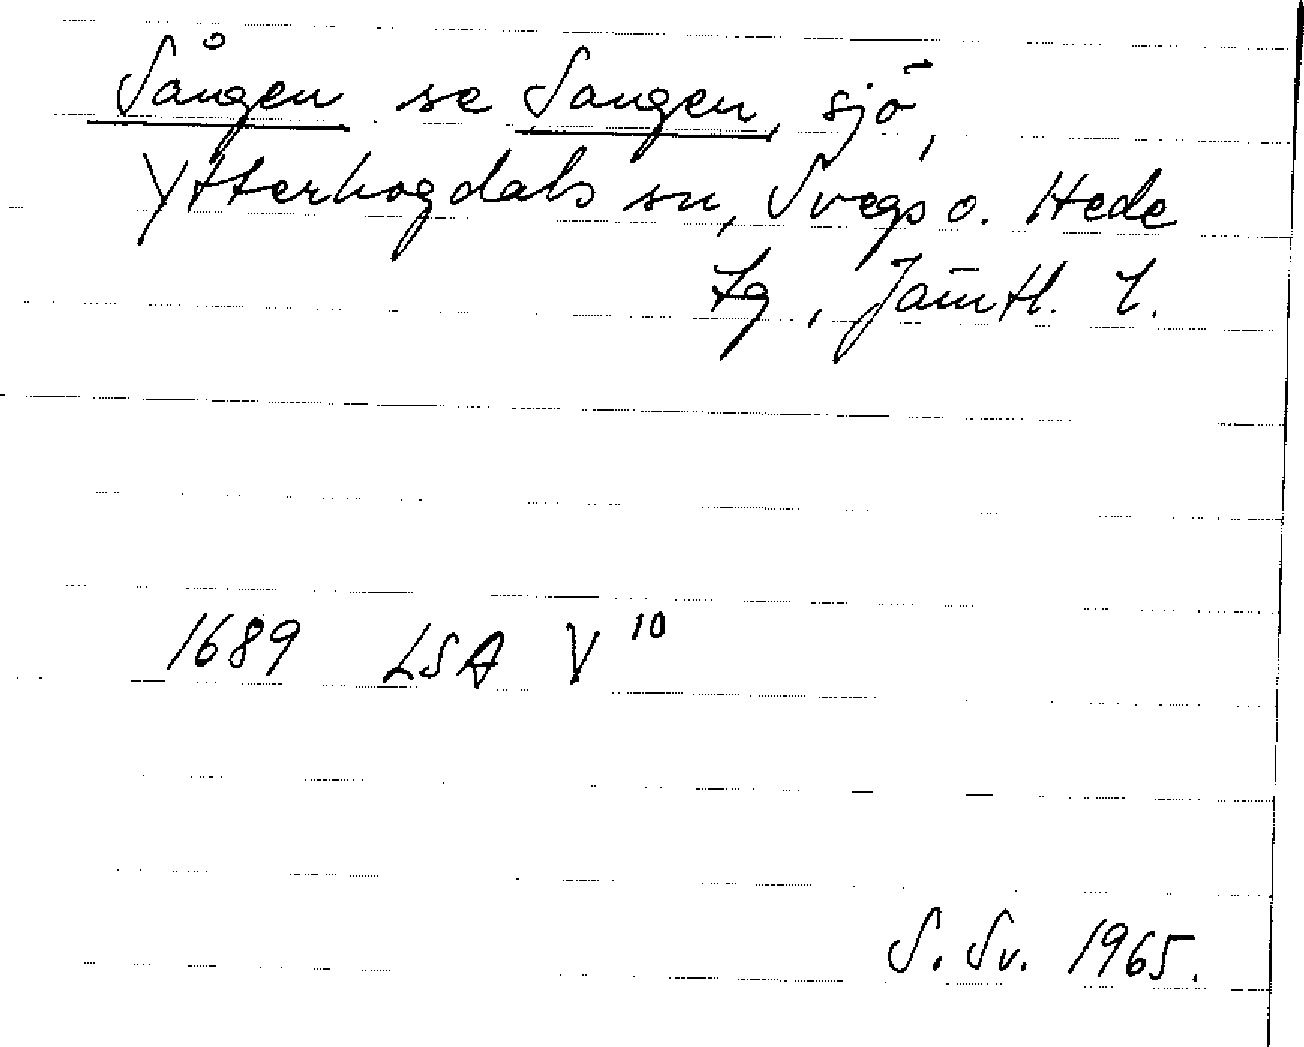 Sången se Sangen, sjö,
Ytterhogdals sn, Svegs o. Hede
tg, Jämtl. l.
1689 LSA V¹⁰
S. Sv. 1965.